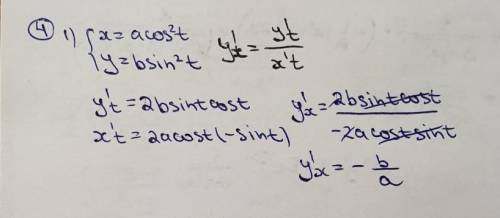 ④ 1) { x = acos²t
y = bsin²t
y't = y't / x't
y't = 2bsintcost
x't = 2acost(-sint)
y'x = 2bsintcost / -2acostsint
y'x = - b/a